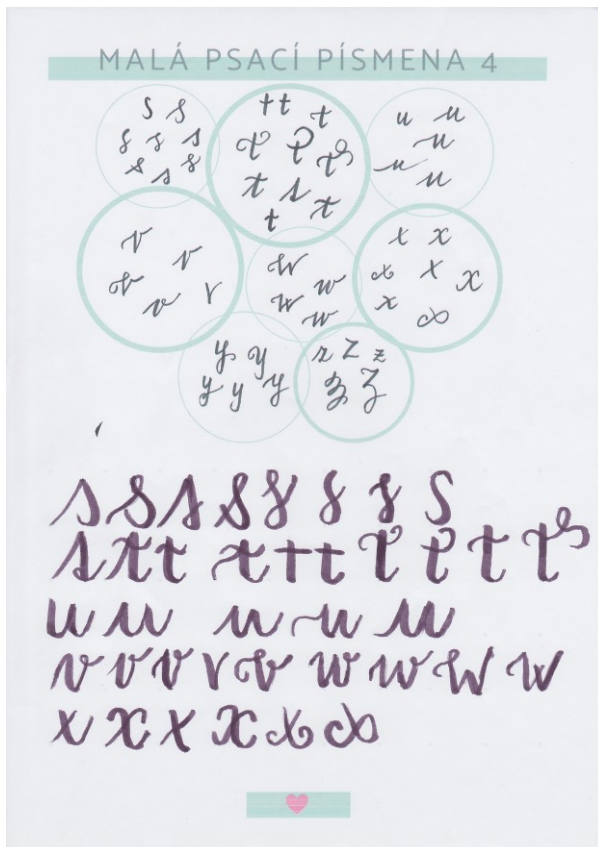 MALÁ PSACÍ PÍSMENA 4
s s
s s s
s s s
t t t
t t t
t t
t t
u u
u
u
u
v
v
v
v v
w
w
w
w
x x
x x x
x
x
y y
y y y
z z z
z z
s s s s s s s s
t t t t t t t t t t
u u u u u
v v v v v w w w w
x x x x x x